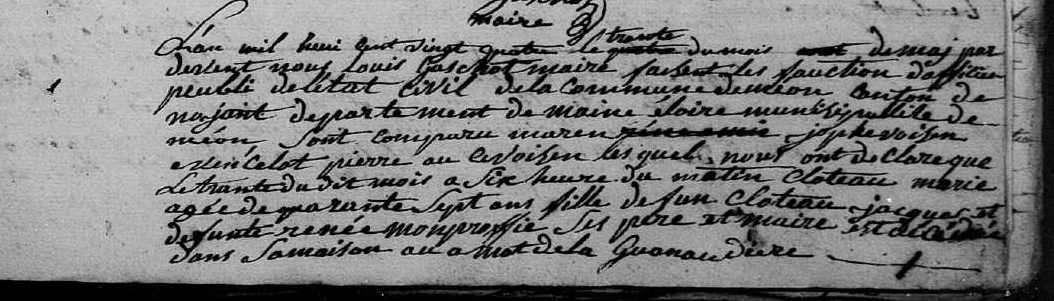 maire
L'an mil huui cent vingt quatre le trante du mois de maj par
devient nous Louis Gaschot maire faisent les fauction daffitier
peubli de l'état civil de la commune de méon canton de
nojant departe ment de maine éloire munisipallité de
méon sont comparu maren jophe voisen
e pierre au cevoisen les quels nous ont de clare que
Le trante du dit mois a six heure du matin Cloteau marie
agée de qarante sept ans fille de fun Cloteau jacques et
defunte renée monprossie ses pere et maire est décédée
dans sa maison au a mot de la Guanaudiere